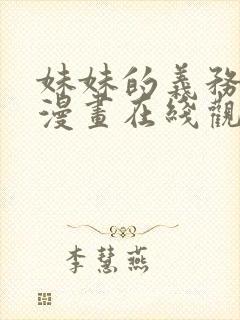 妹妹的義務
漫畫在綫觀
李慧燕